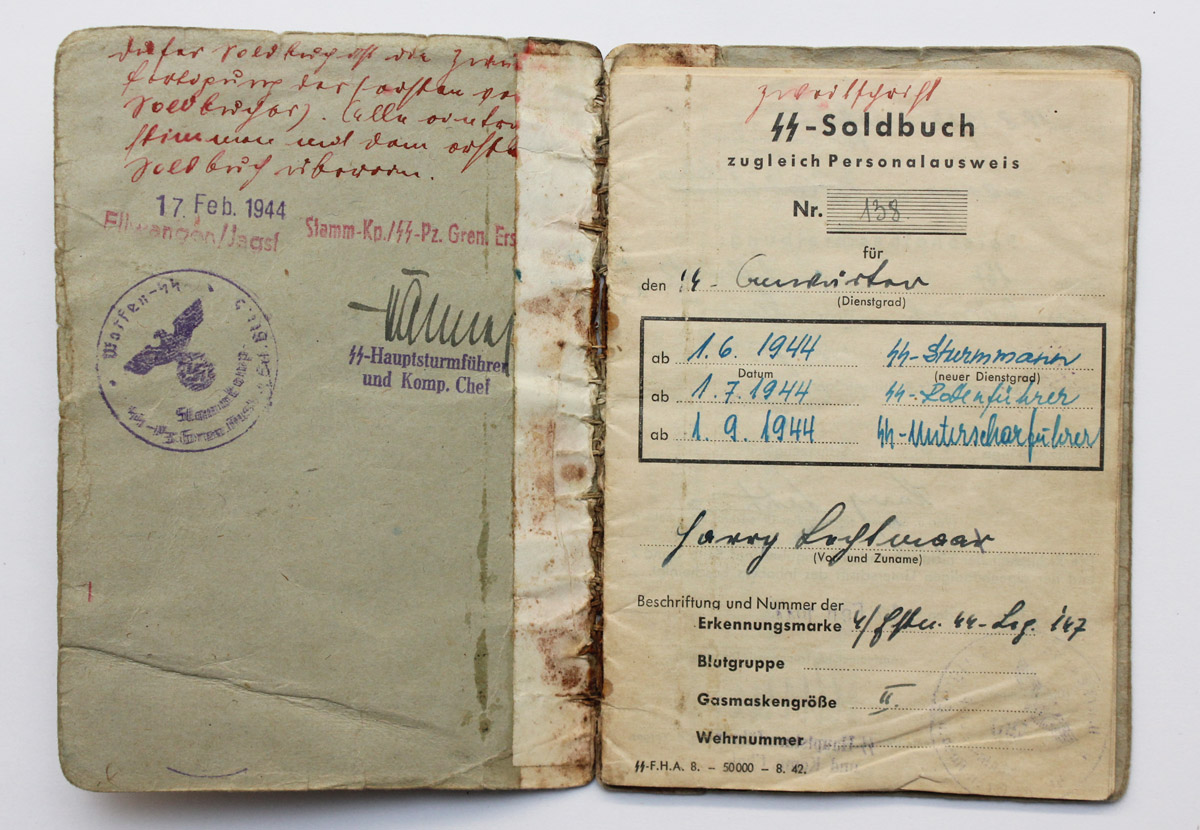 dieses Soldbuch ist die Zwei
fertigung des (ersten ve
Soldbuches). (Alle eintra
stimmen mit dem erst
Soldbuch überein.
17. Feb. 1944
Ellwangen/Jagst
Stamm-Kp./SS-Pz. Gren. Ers
SS-Hauptsturmführer
und Komp. Chef
Waffen-SS
Zweitschrift
SS-Soldbuch
zugleich Personalausweis
Nr. 138
für
den SS-Anwärter
(Dienstgrad)
ab 1.6. 1944 SS-Sturmmann
Datum (neuer Dienstgrad)
ab 1.7.1944 SS-Rottenführer
ab 1.9.1944 SS-Unterscharführer
Harry
(Vor- und Zuname)
Beschriftung und Nummer der
Erkennungsmarke 4/Estn. SS-Leg. 147
Blutgruppe
Gasmaskengröße II.
Wehrnummer
SS-F.H.A. 8. – 50000 – 8. 42.